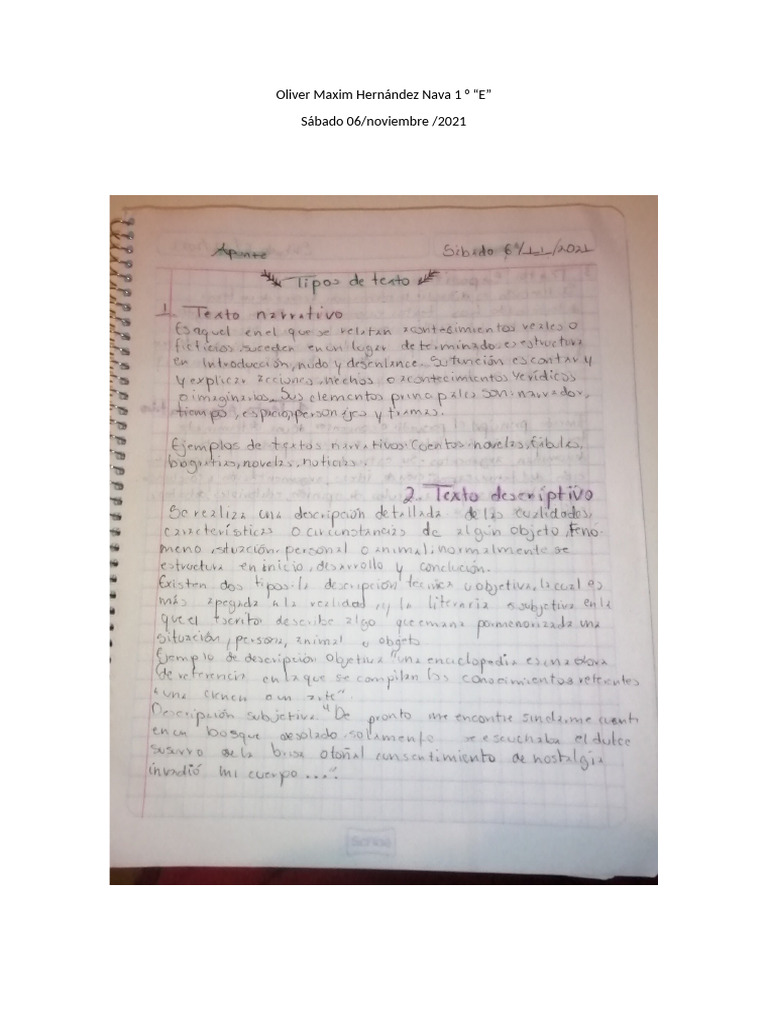 Oliver Maxim Hernández Nava 1 ° “E”
Sábado 06/noviembre /2021
Apunte Sábado 6/11/2021
Tipos de texto
1. Texto narrativo
Es aquel en el que se relatan acontesimientos reales o
ficticios, suceden en un lugar determinado, es estructura
en introducción, nudo y desenlance. Su función es contar y
y explicar acciones, hechos o acontecimientos verídicos
o imaginarios. Sus elementos principales son: narrador,
tiempo, espacio, personajes y tramas.
Ejemplos de textos narrativos: Cuentos, novelas, fábulas,
biografías, novelas, noticias.
2. Texto descriptivo
Se realiza una descripción detallada de las cualidades,
características o circunstancias de algún objeto, fenó-
meno, situación, personal o animal, normalmente se
estructura en inicio, desarrollo y conclución.
Existen dos tipos: la descripción tecnica u objetiva, la cual es
más apegada a la realidad, y la literaria o subjetiva en la
que el escritor describe algo que emana pormenorizada una
situación, persona, animal u objeto
Ejemplo de descripción objetiva "una enciclopedia es una obra
de referencia en la que se compilan los conocimientos referentes
a una ciencia o un arte".
Descripción subjetiva: "De pronto me encontre sin darme cuenta
en un bosque desolado, solamento se escuchaba el dulce
susurro de la brisa otoñal un sentimiento de nostalgia
invadió mi cuerpo ...".